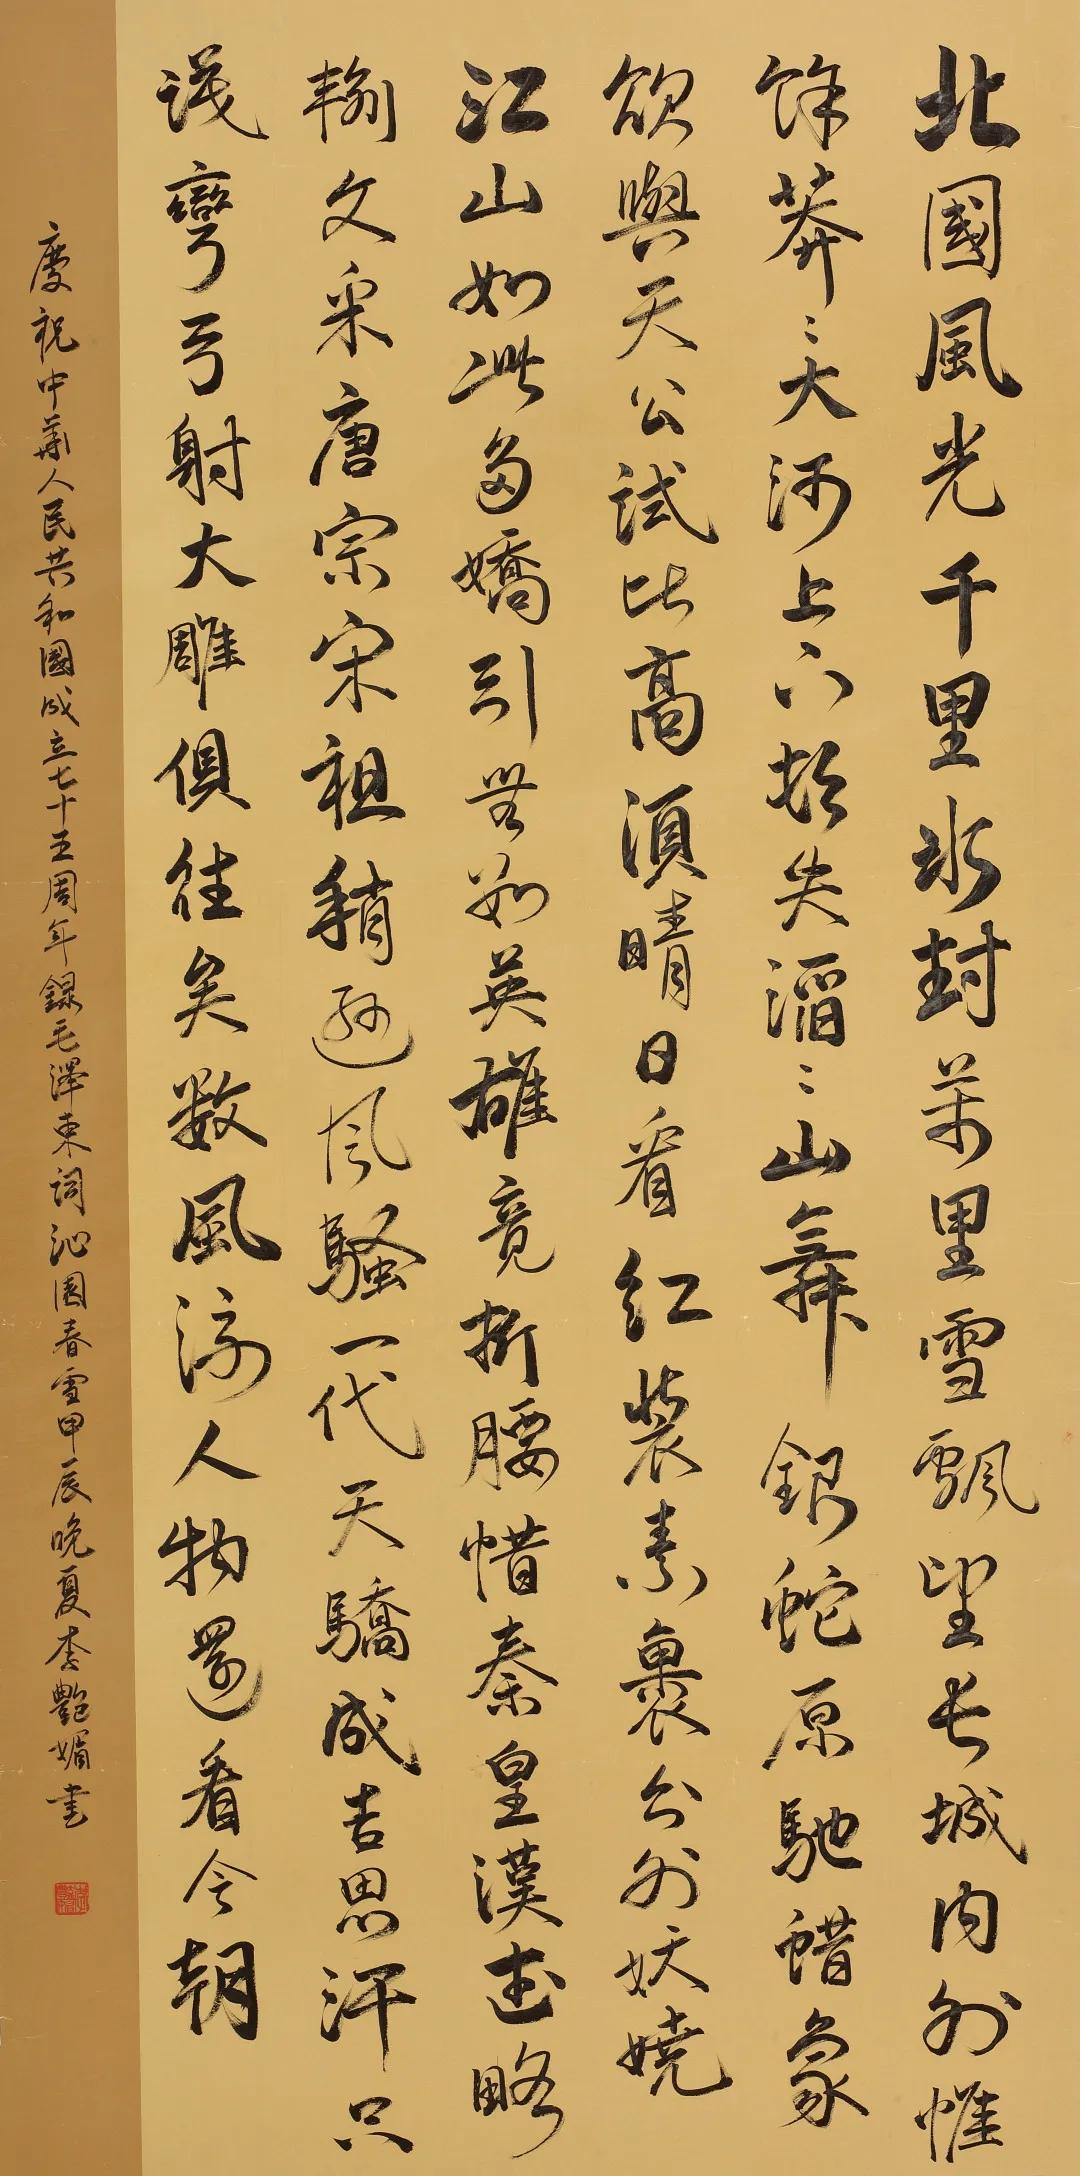 北國風光千里冰封萬里雪飄望長城內外惟
餘莽〻大河上下頓失滔〻山舞銀蛇原馳蜡象
欲與天公試比高須晴日看紅裝素裹分外妖嬈
江山如此多嬌引無數英雄竟折腰惜秦皇漢武略
輸文采唐宗宋祖稍遜風騷一代天驕成吉思汗只
識彎弓射大雕俱往矣数風流人物還看今朝
慶祝中華人民共和國成立七十五周年錄毛澤東詞沁園春雪甲辰晚夏李艷媚書